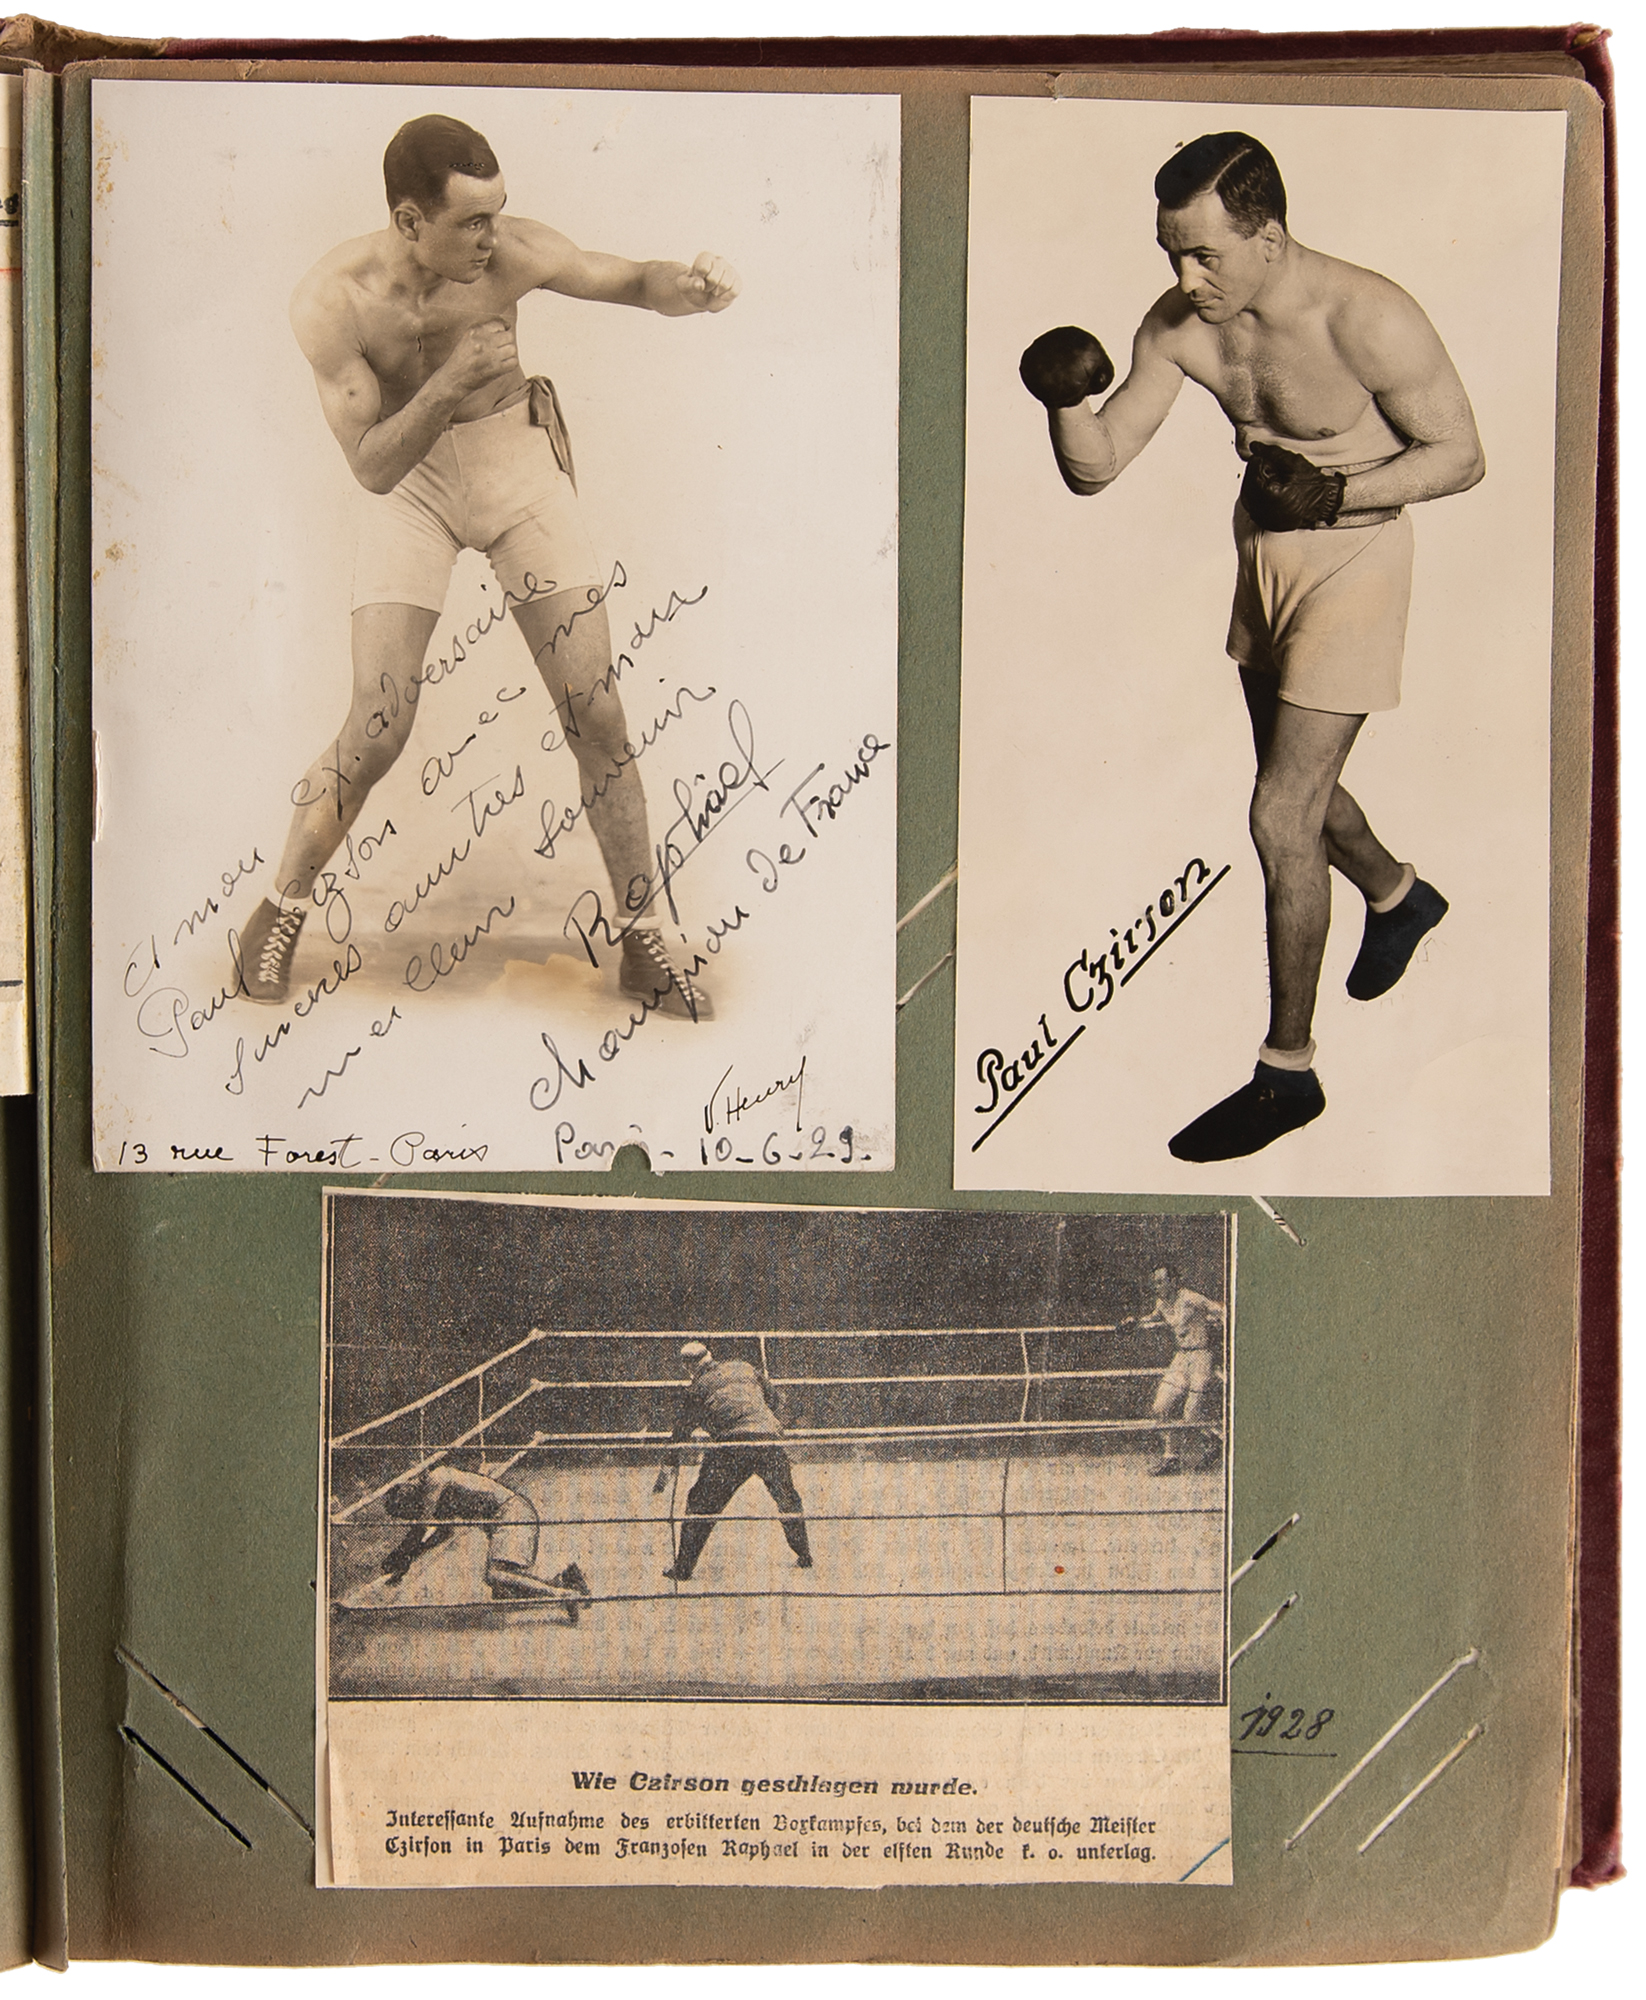 A mon ex. adversaire
Paul Cizson avec mes
succès aux tres et mon
meilleur souvenir
Raphaël
champion de France
V. Henry
13 rue Forest - Paris
Paris - 10-6-29.
Paul Czirson
1928
Wie Czirson geschlagen wurde.
Interessante Aufnahme des erbitterten Boxkampfes, bei dem der deutsche Meister
Czirson in Paris dem Franzosen Raphael in der elften Runde k. o. unterlag.